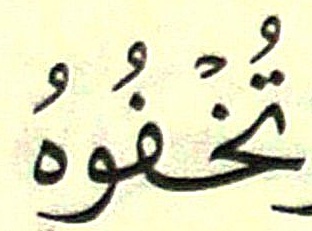 تُخْفُوهُ